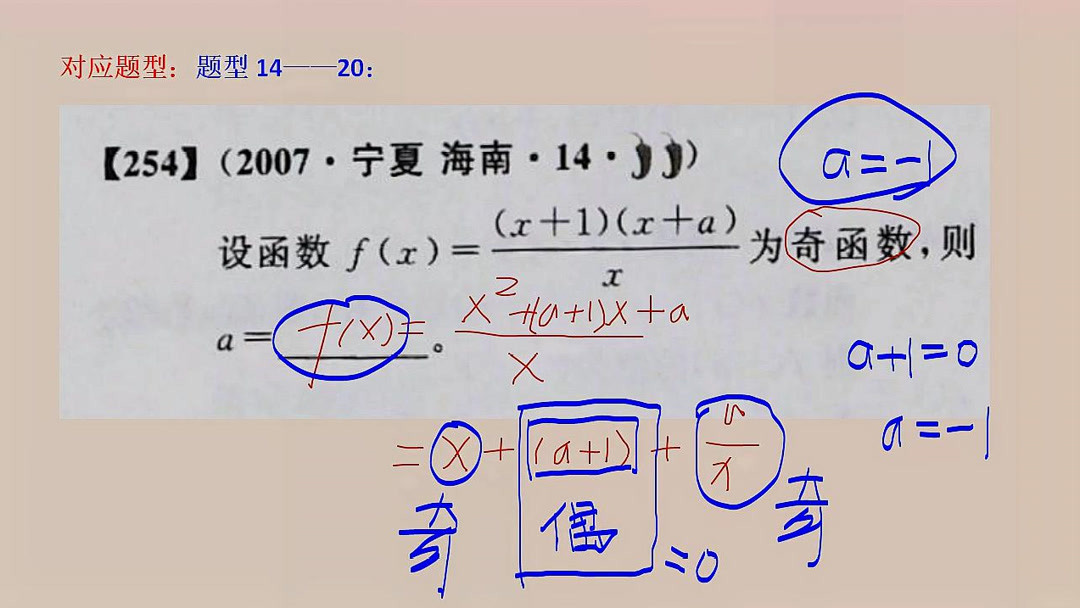 对应题型：题型 14——20：
【254】(2007·宁夏 海南·14·
a=-1
设函数 f(x)=(x+1)(x+a)/x 为奇函数，则
a=______。
f(x)= x²+(a+1)x+a / x
a+1=0
a=-1
= x + (a+1) + a/x
奇 偶 =0 奇